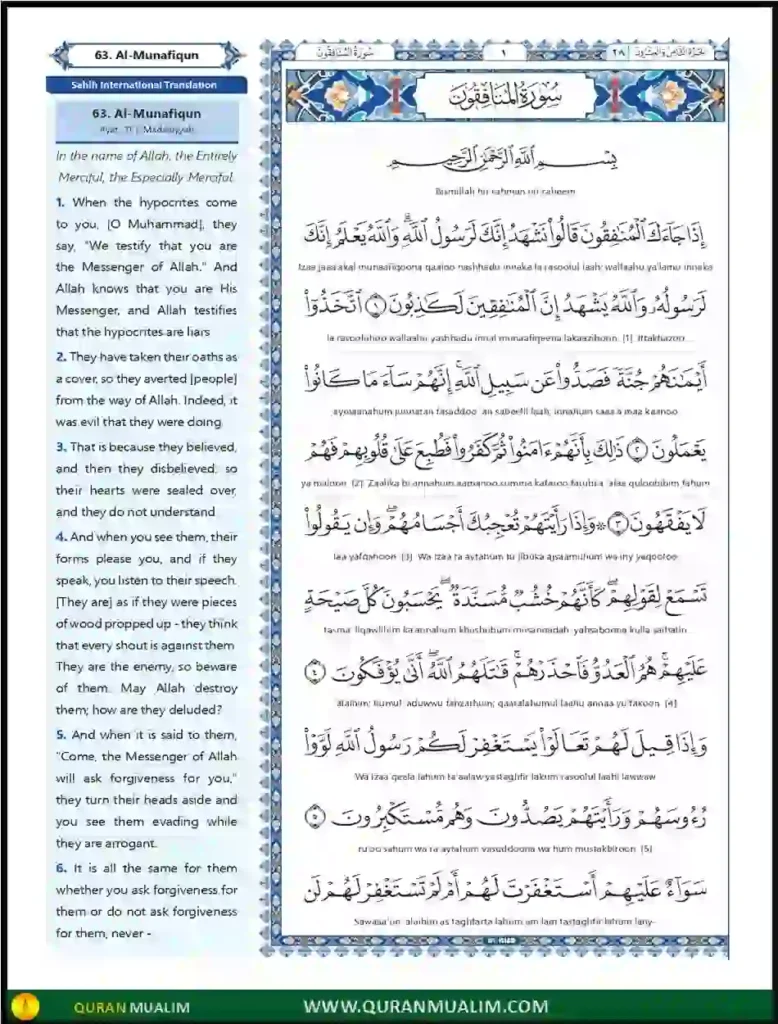 63. Al-Munafiqun
Sahih International Translation
63. Al-Munafiqun
Ayat: 11 | Madaniyyah
In the name of Allah, the Entirely
Merciful, the Especially Merciful.
1. When the hypocrites come
to you, [O Muhammad], they
say, "We testify that you are
the Messenger of Allah." And
Allah knows that you are His
Messenger, and Allah testifies
that the hypocrites are liars
2. They have taken their oaths as
a cover, so they averted [people]
from the way of Allah. Indeed, it
was evil that they were doing.
3. That is because they believed,
and then they disbelieved; so
their hearts were sealed over,
and they do not understand.
4. And when you see them, their
forms please you, and if they
speak, you listen to their speech.
[They are] as if they were pieces
of wood propped up - they think
that every shout is against them.
They are the enemy, so beware
of them. May Allah destroy
them; how are they deluded?
5. And when it is said to them,
"Come, the Messenger of Allah
will ask forgiveness for you,"
they turn their heads aside and
you see them evading while
they are arrogant.
6. It is all the same for them
whether you ask forgiveness for
them or do not ask forgiveness
for them; never -
سورة المنافقون
١
٢٨
سُورَةُ المُنَافِقُونَ
بِسْمِ اللَّهِ الرَّحْمَٰنِ الرَّحِيمِ
Bismillah hir rahman nir raheem
إِذَا جَاءَكَ الْمُنَافِقُونَ قَالُوا نَشْهَدُ إِنَّكَ لَرَسُولُ اللَّهِ ۗ وَاللَّهُ يَعْلَمُ إِنَّكَ
Izaa jaaa'akal munaafiqoona qaaloo nashhadu innaka la rasoolul laah; wallaahu ya'lamu innaka
لَرَسُولُهُ وَاللَّهُ يَشْهَدُ إِنَّ الْمُنَافِقِينَ لَكَاذِبُونَ ١ اتَّخَذُوا
la rasooluhoo wallaahu yashhadu innal munaafiqeena lakaaziboon [1] Ittakhazoo
أَيْمَانَهُمْ جُنَّةً فَصَدُّوا عَن سَبِيلِ اللَّهِ ۚ إِنَّهُمْ سَاءَ مَا كَانُوا
aymaanahum junnatan fasaddoo 'an sabeelil laah; innahum saaa'a maa kaanoo
يَعْمَلُونَ ٢ ذَٰلِكَ بِأَنَّهُمْ ءَامَنُوا ثُمَّ كَفَرُوا فَطُبِعَ عَلَىٰ قُلُوبِهِمْ فَهُمْ
ya'maloon [2] Zaalika bi annahum aamanoo summa kafaroo fatubi'a 'alaa quloobihim fahum
لَا يَفْقَهُونَ ٣ ۞ وَإِذَا رَأَيْتَهُمْ تُعْجِبُكَ أَجْسَامُهُمْ ۖ وَإِن يَقُولُوا
laa yafqahoon [3] Wa izaa ra aytahum tu'jibuka ajsaamuhum wa iny yaqooloo
تَسْمَعْ لِقَوْلِهِمْ ۖ كَأَنَّهُمْ خُشُبٌ مُّسَنَّدَةٌ ۖ يَحْسَبُونَ كُلَّ صَيْحَةٍ
tasma' liqawlihim ka'annahum khushubum musannadah; yahsaboona kulla saihatin
عَلَيْهِمْ ۚ هُمُ الْعَدُوُّ فَاحْذَرْهُمْ ۚ قَاتَلَهُمُ اللَّهُ ۖ أَنَّىٰ يُؤْفَكُونَ ٤
'alaihim; humul 'aduwwu fahzarhum; qaatalahumul laahu annaa yu'fakoon [4]
وَإِذَا قِيلَ لَهُمْ تَعَالَوْا يَسْتَغْفِرْ لَكُمْ رَسُولُ اللَّهِ لَوَّوْا
Wa izaa qeela lahum ta'aalaw yastaghfir lakum rasoolul laahi lawwaw
رُءُوسَهُمْ وَرَأَيْتَهُمْ يَصُدُّونَ وَهُم مُّسْتَكْبِرُونَ ٥
ru'oo sahum wa ra aytahum yasuddoona wa hum mustakbiroon [5]
سَوَاءٌ عَلَيْهِمْ أَسْتَغْفَرْتَ لَهُمْ أَمْ لَمْ تَسْتَغْفِرْ لَهُمْ لَن
Sawaaa'un 'alaihim as taghfarta lahum am lam tastaghfir lahum lany
QURAN MUALIM
WWW.QURANMUALIM.COM